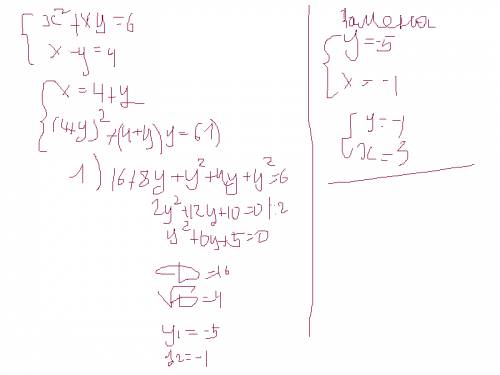 x² + xy = 6
x - y = 4
x = 4 + y
(4+y)² + (4+y) y = 6 1)
1) 16 + 8y + y² + 4y + y² = 6
2y² + 12y + 10 = 0 |:2
y² + 6y + 5 = 0
D = 16
√D = 4
y1 = -5
y2 = -1
Замена
y = -5
x = -1
y = -1
x = 3